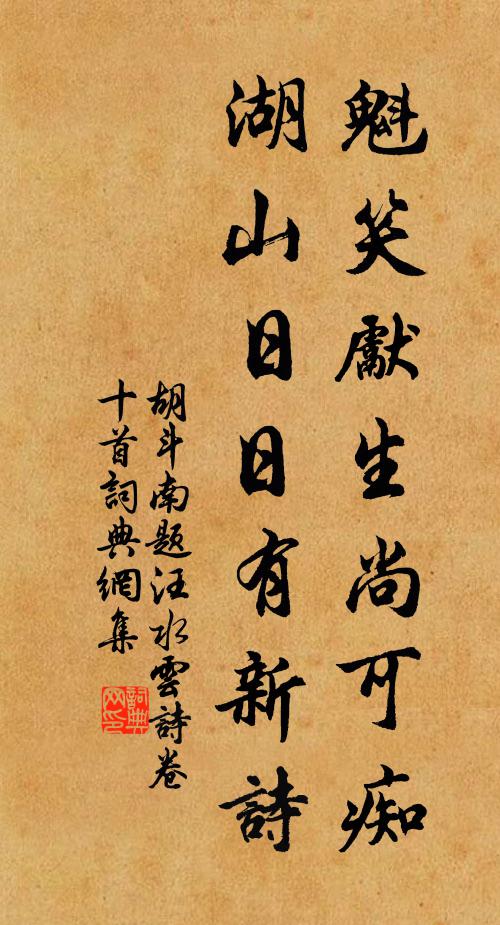 魁笑獻生尚可痴
湖山日日有新詩
胡斗南題汪水雲詩卷
十首詞典網集
詞典网印